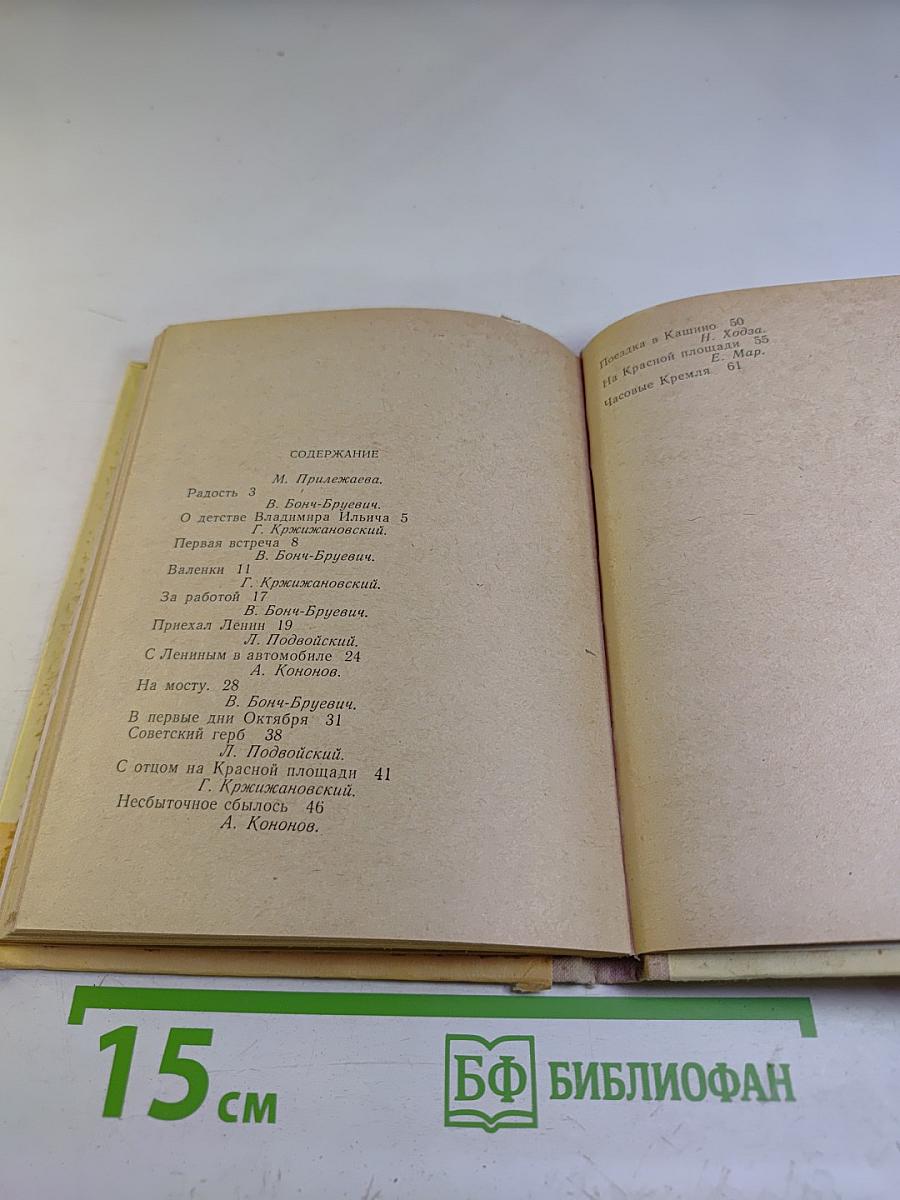 СОДЕРЖАНИЕ
М. Прилежаева.
Радость 3
В. Бонч-Бруевич.
О детстве Владимира Ильича 5
Г. Кржижановский.
Первая встреча 8
В. Бонч-Бруевич.
Валенки 11
Г. Кржижановский.
За работой 17
В. Бонч-Бруевич.
Приехал Ленин 19
Л. Подвойский.
С Лениным в автомобиле 24
А. Кононов.
На мосту. 28
В. Бонч-Бруевич.
В первые дни Октября 31
Советский герб 38
Л. Подвойский.
С отцом на Красной площади 41
Г. Кржижановский.
Несбыточное сбылось 46
А. Кононов.
Поездка в Кашино 50
Н. Ходза.
На Красной площади 55
Е. Мар.
Часовые Кремля 61
15 см
БФ БИБЛИОФАН